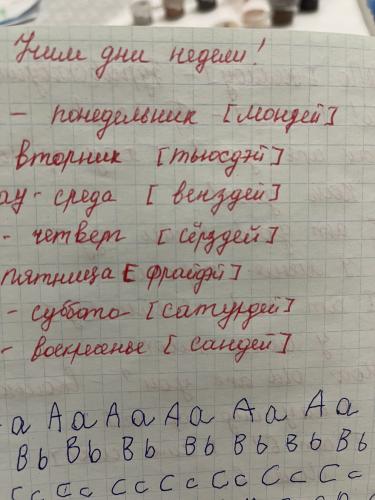 Учим дни недели!
- понедельник [мондей]
вторник [тьюсдэй]
ay - среда [венздей]
- четверг [сёрздей]
пятница [фрайдэй]
- суббота [сатурдей]
- воскресенье [сандей]
a A a A a A a A a A a
B b B b B b B b B b B b B b
C c C c C c C c C c C c C c